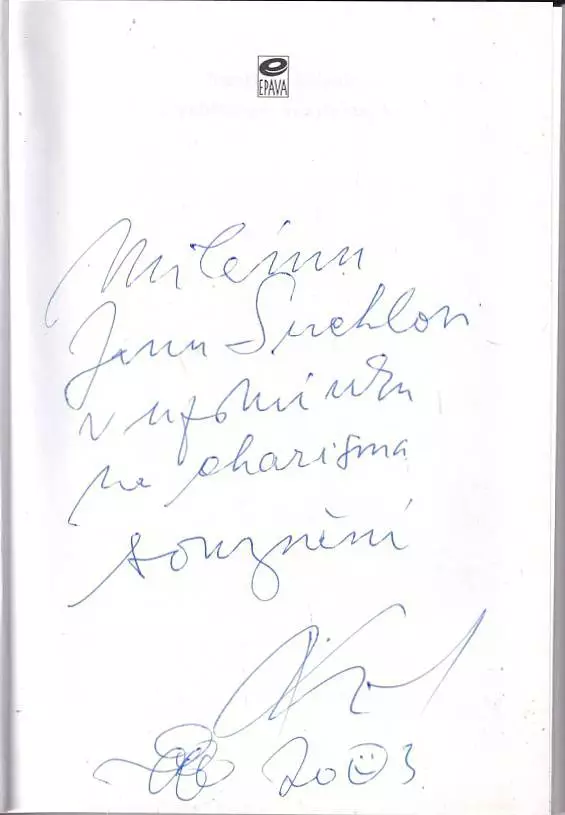 EPAVA
Milému
Janu Suchlovi
v upomínku
na charisma
souznění
2003